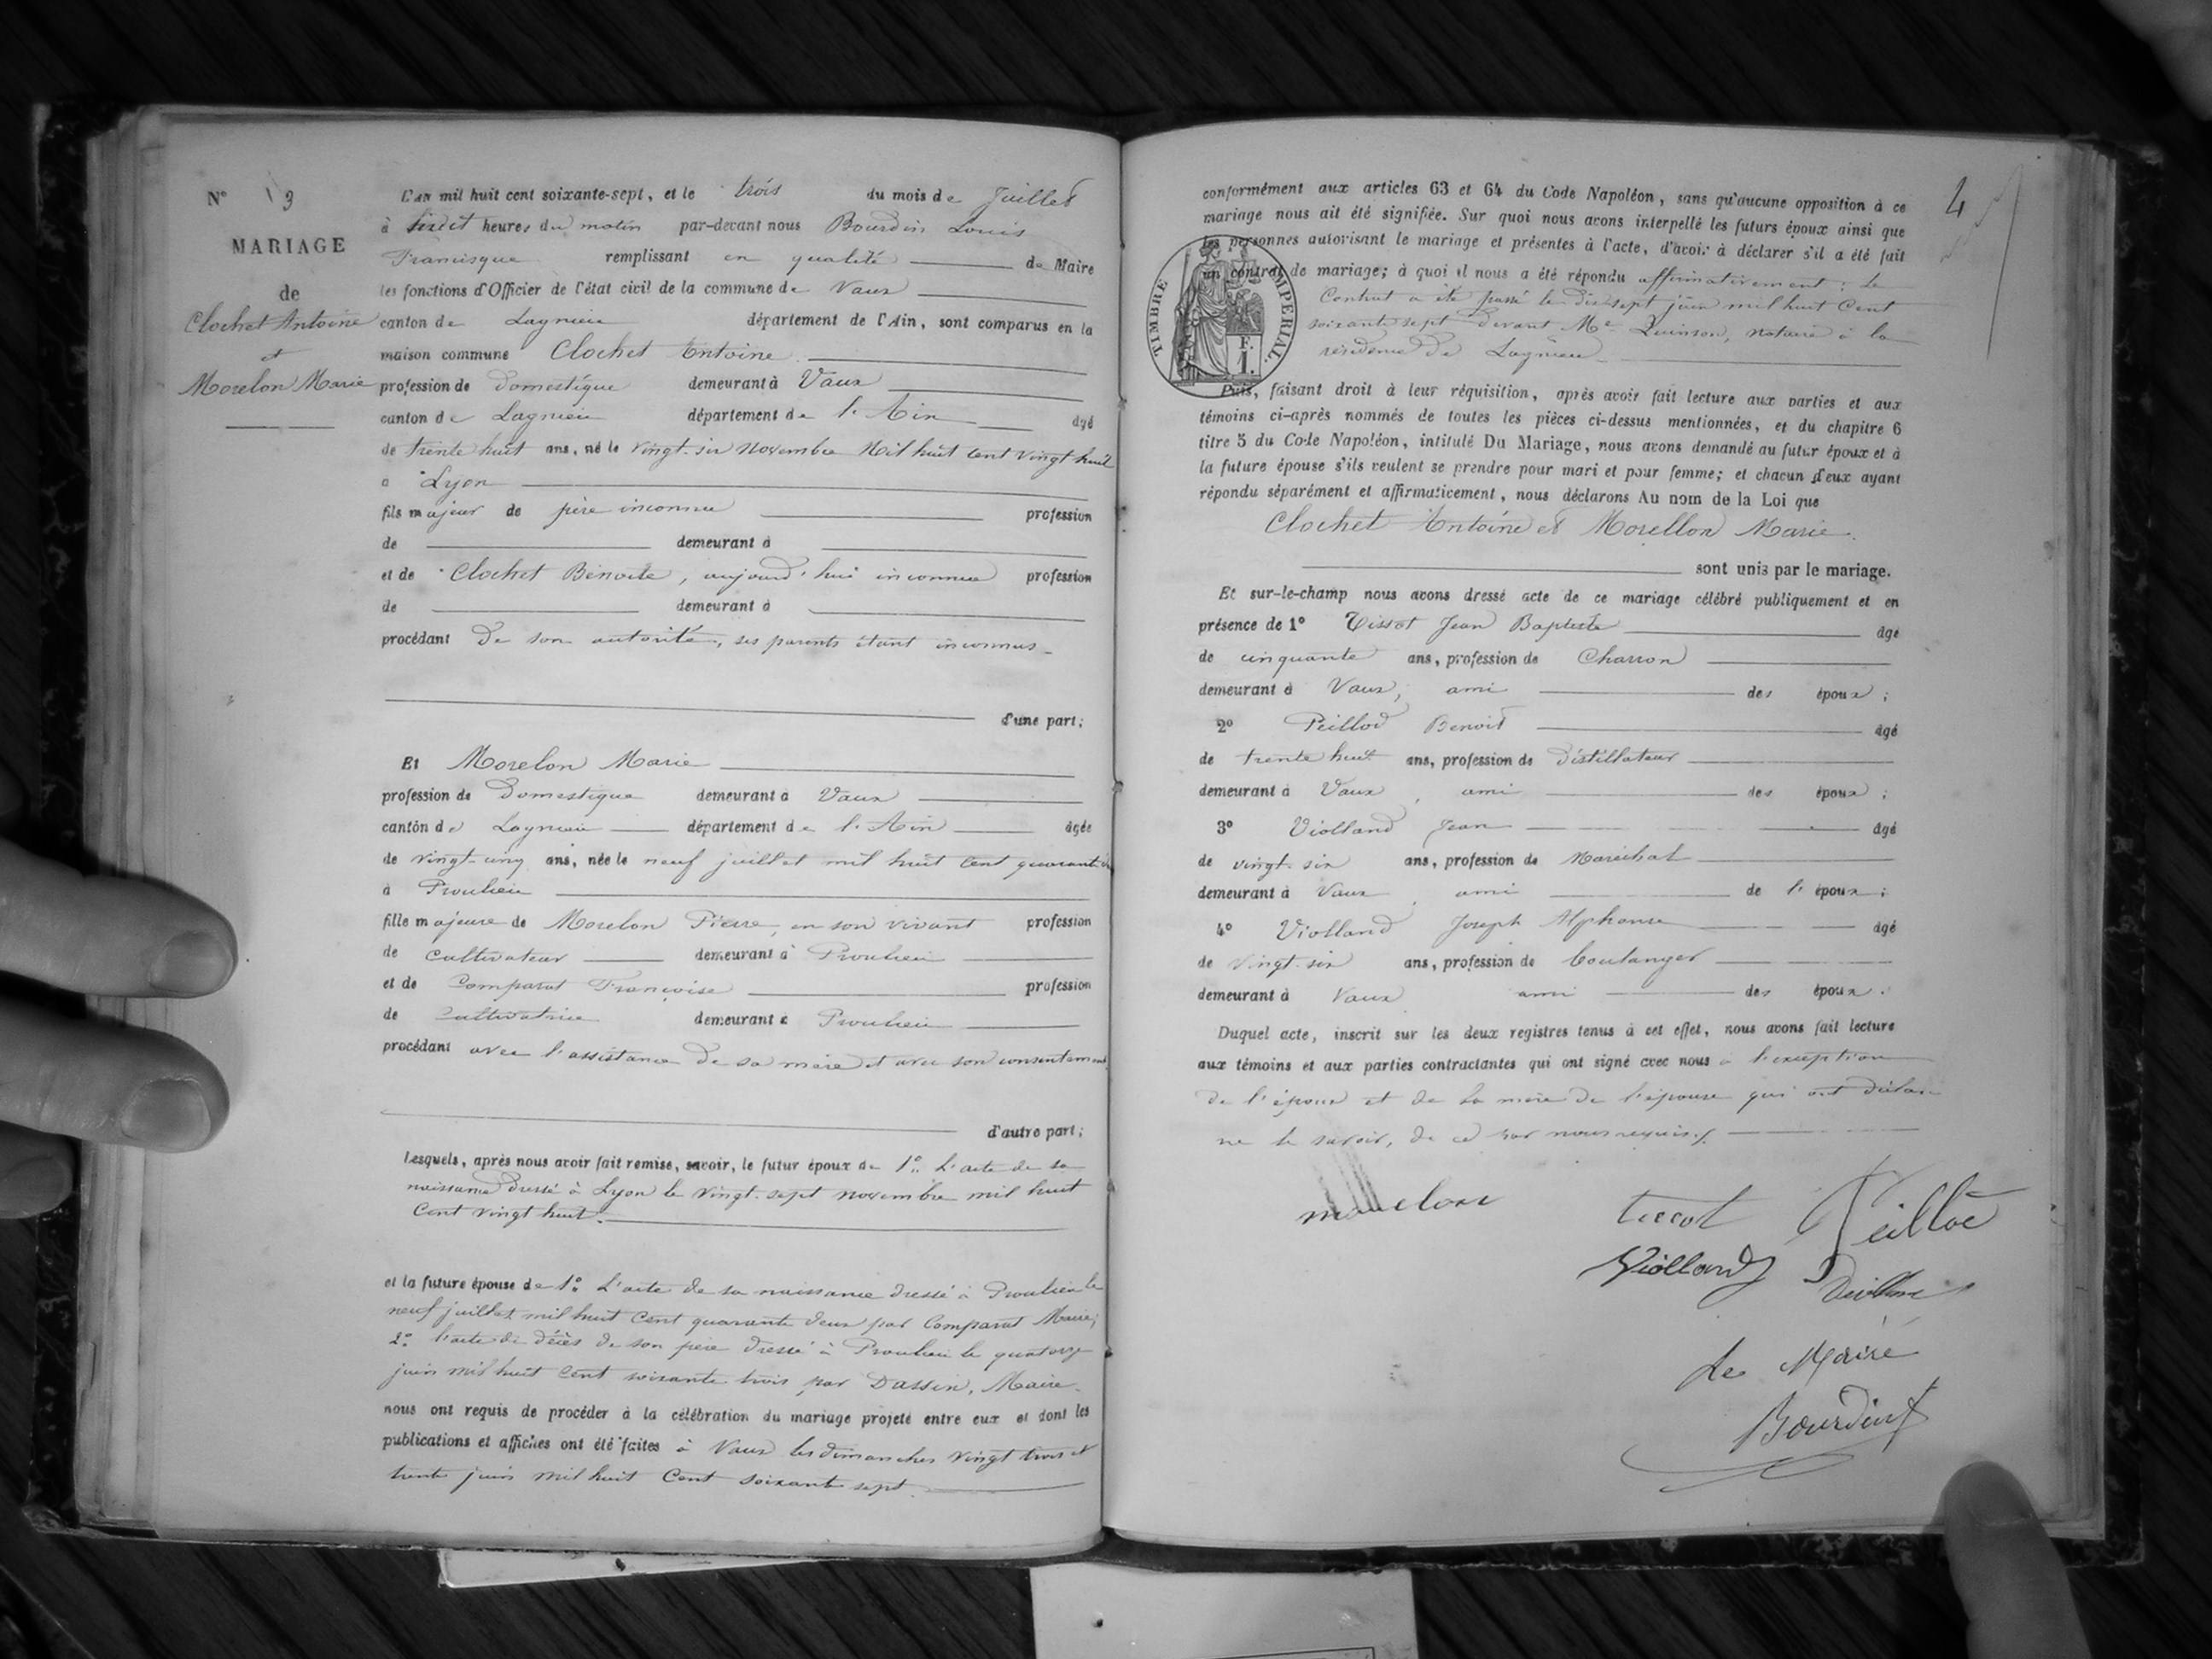 N° 3
MARIAGE
de
Clochet Antoine
et
Morelon Marie
L'an mil huit cent soixante-sept, et le trois du mois de Juillet
à heures du matin par-devant nous Bourdin Louis
Francisque remplissant en qualité de Maire
les fonctions d'Officier de l'état civil de la commune de Vaux
canton de Lagnieu département de l'Ain, sont comparus en la
maison commune Clochet Antoine
profession de Domestique demeurant à Vaux
canton de Lagnieu département de l'Ain âgé
de trente huit ans, né le vingt-six novembre Mil huit cent vingt huit
à Lyon
fils majeur de père inconnu profession
de demeurant à
et de Clochet Benoite, aujourd'hui inconnue profession
de demeurant à
procédant De son autorité, ses parents étant inconnus
d'une part;
Et Morelon Marie
profession de Domestique demeurant à Vaux
canton de Lagnieu département de l'Ain âgée
de vingt-cinq ans, née le neuf juillet mil huit cent quarante
à Proulieu
fille majeure de Morelon Pierre, en son vivant profession
de cultivateur demeurant à Proulieu
et de Comparat Françoise profession
de Cultivatrice demeurant à Proulieu
procédant avec l'assistance de sa mère et avec son consentement
d'autre part;
Lesquels, après nous avoir fait remise, savoir, le futur époux de 1° L'acte de sa
naissance dressé à Lyon le vingt-sept novembre mil huit
Cent vingt huit.
et la future épouse de 1° L'acte de sa naissance dressé à Proulieu le
neuf juillet mil huit Cent quarante deux par Comparat Maire;
2° l'acte de décès de son père dressé à Proulieu le quatorze
juin mil huit Cent soixante trois par Dassin, Maire
nous ont requis de procéder à la célébration du mariage projeté entre eux et dont les
publications et affiches ont été faites à Vaux les dimanches vingt trois et
trente juin mil huit Cent soixante sept
4
conformément aux articles 63 et 64 du Code Napoléon, sans qu'aucune opposition à ce
mariage nous ait été signifiée. Sur quoi nous avons interpellé les futurs époux ainsi que
les personnes autorisant le mariage et présentes à l'acte, d'avoir à déclarer s'il a été fait
un contrat de mariage; à quoi il nous a été répondu affirmativement: Le
Contrat a été passé le dix sept juin mil huit Cent
soixante sept devant Me Quinson, notaire à la
résidence de Lagnieu
TIMBRE IMPERIAL
F.
1.
Puis, faisant droit à leur réquisition, après avoir fait lecture aux parties et aux
témoins ci-après nommés de toutes les pièces ci-dessus mentionnées, et du chapitre 6
titre 5 du Code Napoléon, intitulé Du Mariage, nous avons demandé au futur époux et à
la future épouse s'ils veulent se prendre pour mari et pour femme; et chacun d'eux ayant
répondu séparément et affirmativement, nous déclarons Au nom de la Loi que
Clochet Antoine et Morellon Marie
sont unis par le mariage.
Et sur-le-champ nous avons dressé acte de ce mariage célébré publiquement et en
présence de 1° Tissot Jean Baptiste âgé
de cinquante ans, profession de Charron
demeurant à Vaux, ami des époux;
2° Peillod Benoit âgé
de trente huit ans, profession de distillateur
demeurant à Vaux, ami des époux;
3° Violland Jean âgé
de vingt-six ans, profession de Maréchal
demeurant à Vaux, ami de l'époux;
4° Violland Joseph Alphonse âgé
de vingt-six ans, profession de boulanger
demeurant à Vaux ami des époux.
Duquel acte, inscrit sur les deux registres tenus à cet effet, nous avons fait lecture
aux témoins et aux parties contractantes qui ont signé avec nous à l'exception
de l'époux et de la mère de l'épouse qui ont déclaré
ne le savoir, de ce par nous requis
tissot
Violland
Le Maire
Bourdin